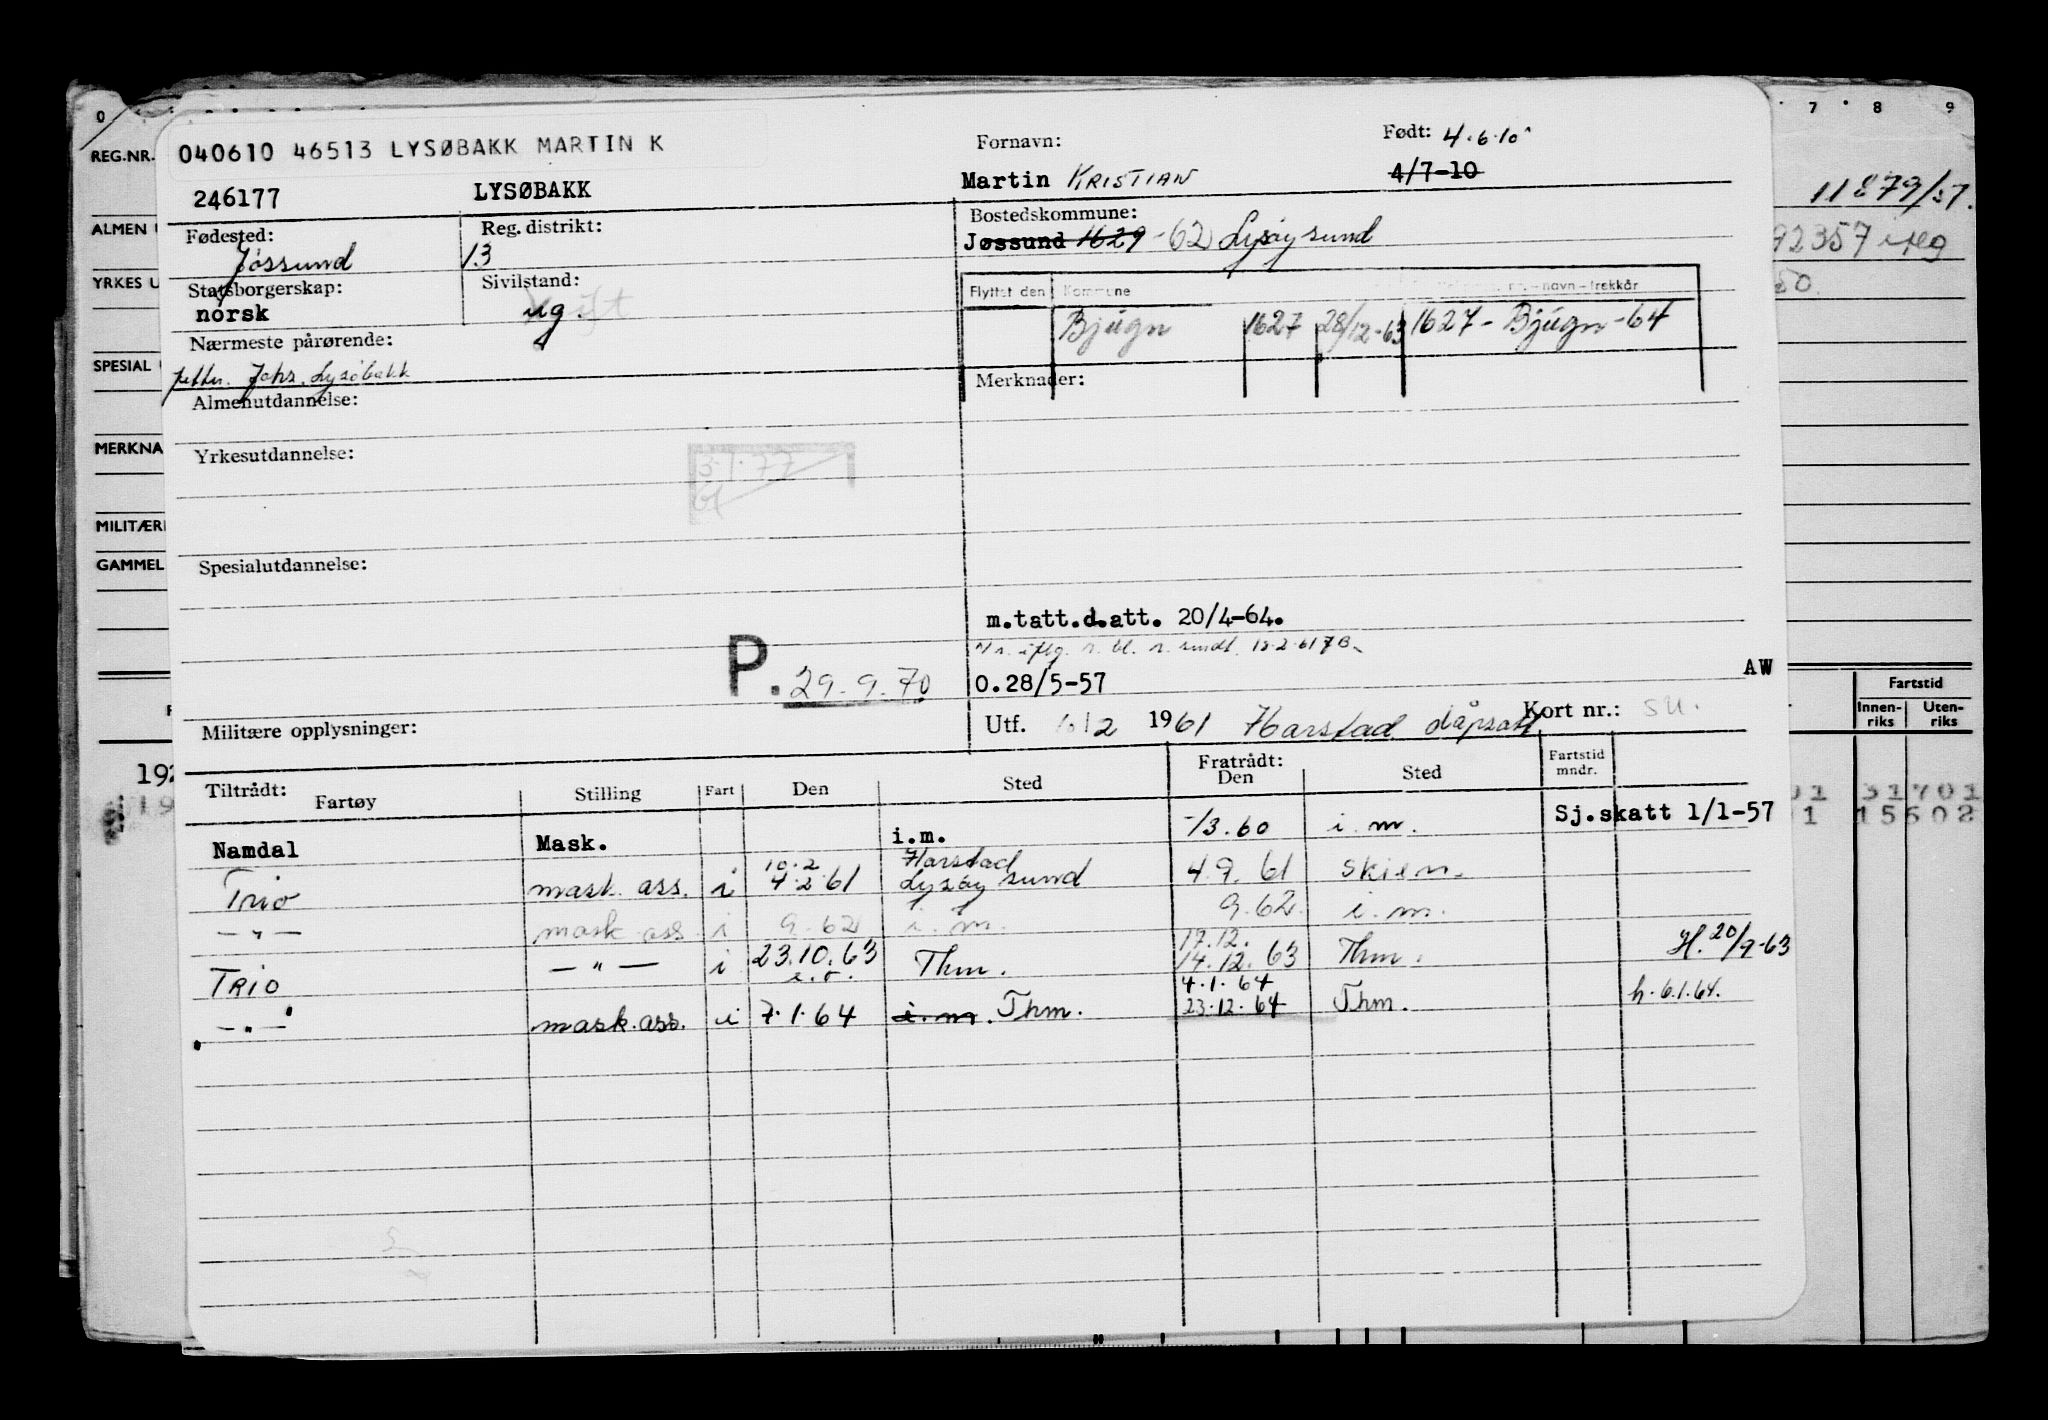 0 7 8 9
REG.NR.
040610 46513 LYSØBAKK MARTIN K
Fornavn:
Født: 4.6.10
246177 LYSØBAKK
Martin KRISTIAN
4/7-10
11879/57.
ALMEN
Fødested:
Reg. distrikt:
Bostedskommune:
Jøssund
13
Jøssund 1629 -62 Lysøysund
92357
YRKES
Statsborgerskap:
Sivilstand:
Flyttet den Kommune -navn-trekkår
norsk
ug
Bjugn 1627 28/12-63 1627-Bjugn-64
Nærmeste pårørende:
SPESIAL
Johs. Lysøbakk
Merknader:
Almenutdannelse:
MERKNA
Yrkesutdannelse:
3.1.77
MILITÆR
GAMMEL
Spesialutdannelse:
m.tatt.d.att. 20/4-64.
P. 29.9.70
0.28/5-57
AW
Fartstid
Innen-riks Uten-riks
Militære opplysninger:
Utf. 10/2 1961 Harstad dåpsatt
Kort nr.: SU.
Tiltrådt:
Fratrådt:
Fartstid mndr.
Fartøy Stilling Fart Den Sted Den Sted
31701
15602
Namdal Mask. i.m. -/3.60 i.m. Sj.skatt 1/1-57
10.2 Harstad
Trio mask. ass. i 4.2.61 Lysøysund 4.9.61 Skien.
—"— mask ass i 9.62 i.m. 9.62. i.m.
17.12.
TRIO —"— i 23.10.63 Thm. 14.12.63 Thm. H.20/9-63
4.1.64
—"— mask.ass. i 7.1.64 i.m. Thm. 23.12.64 Thm. h.6.1.64.